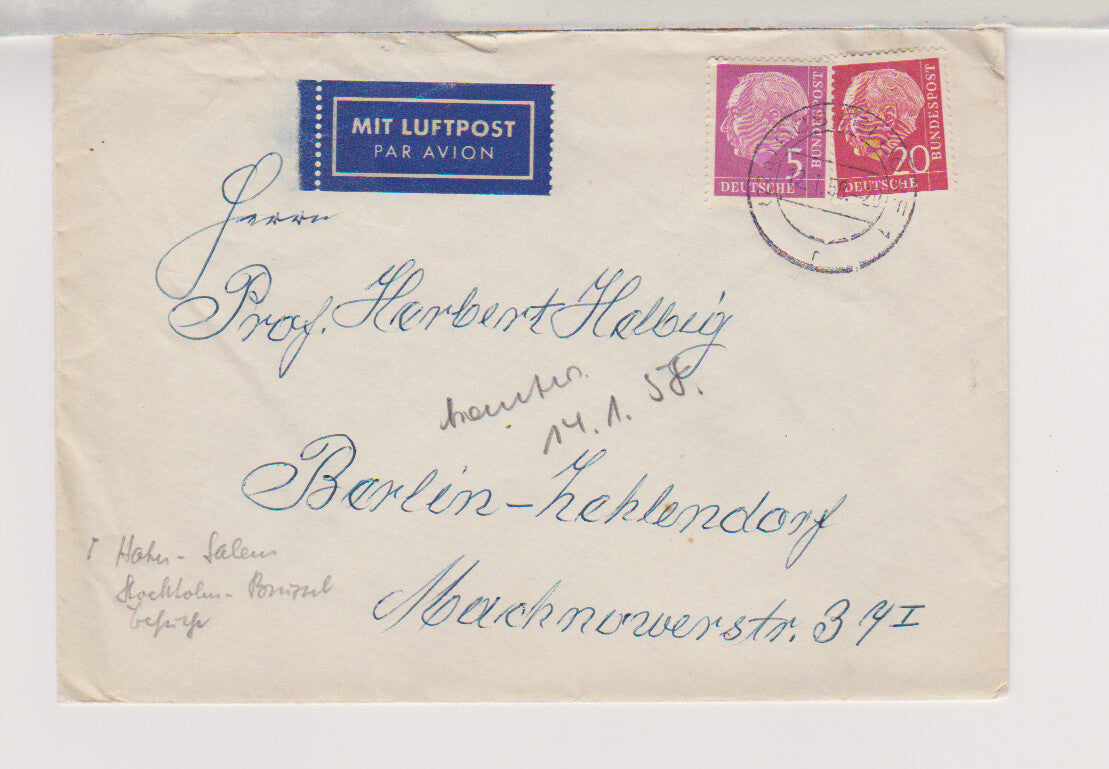 MIT LUFTPOST
PAR AVION
5
DEUTSCHE
BUNDESPOST
20
DEUTSCHE
BUNDESPOST
Herrn
Prof. Herbert Halbig
14.1.58.
Berlin-Zehlendorf
Machnowerstr. 37 I
Hahn - Salem
Stockholm - Brüssel